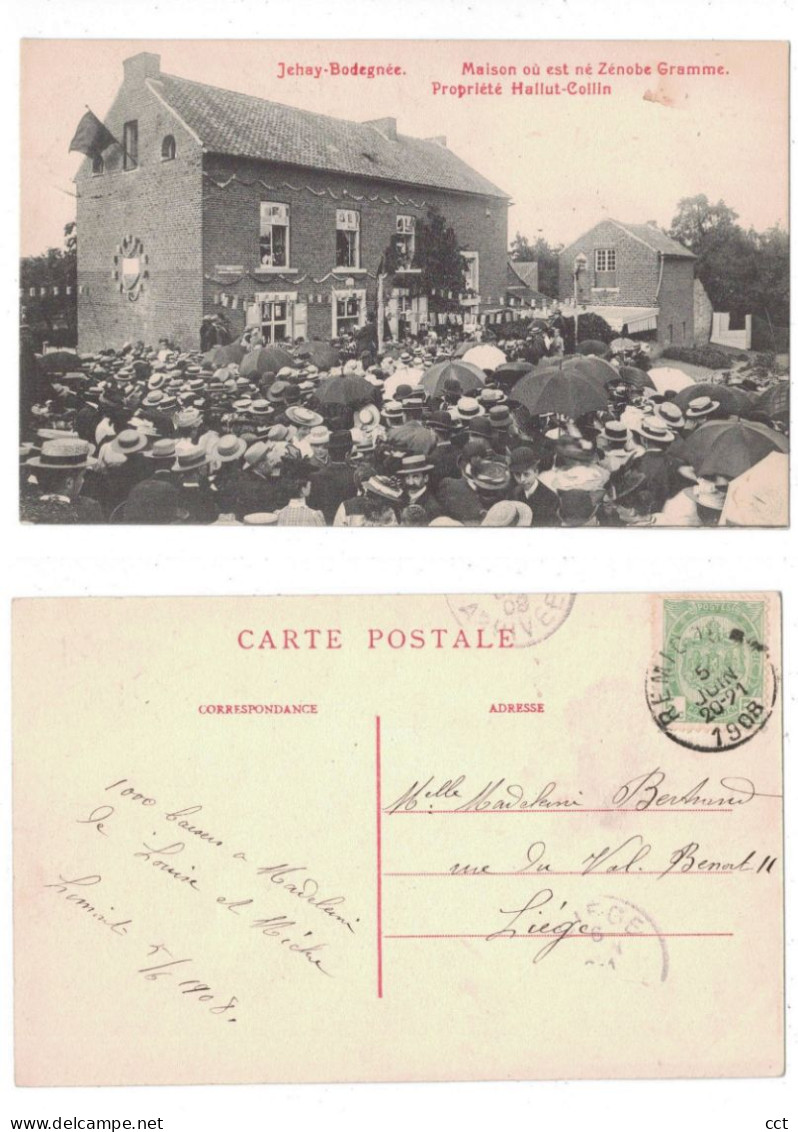 Jehay-Bodegnée. Maison où est né Zénobe Gramme.
Propriété Hallut-Collin
CARTE POSTALE
CORRESPONDANCE
ADRESSE
REMIC
5
JUIN
20-21
1908
1000 baisers a Madeleine
de Louise et
5/6 1908.
Melle Madeleine Bertrand
rue du Val. Benoit 11
Liége
cct
Delcampe.net